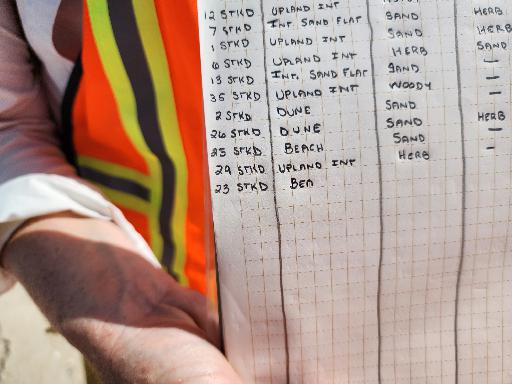 12 STKD UPLAND INT
7 STKD INT SAND FLAT SAND HERB
1 STKD UPLAND INT SAND HERB
6 STKD UPLAND INT HERB SAND
13 STKD INT. SAND FLAT SAND —
35 STKD UPLAND INT WOODY
2 STKD DUNE SAND —
26 STKD DUNE SAND HERB
25 STKD BEACH SAND —
29 STKD UPLAND INT HERB —
23 STKD BEA